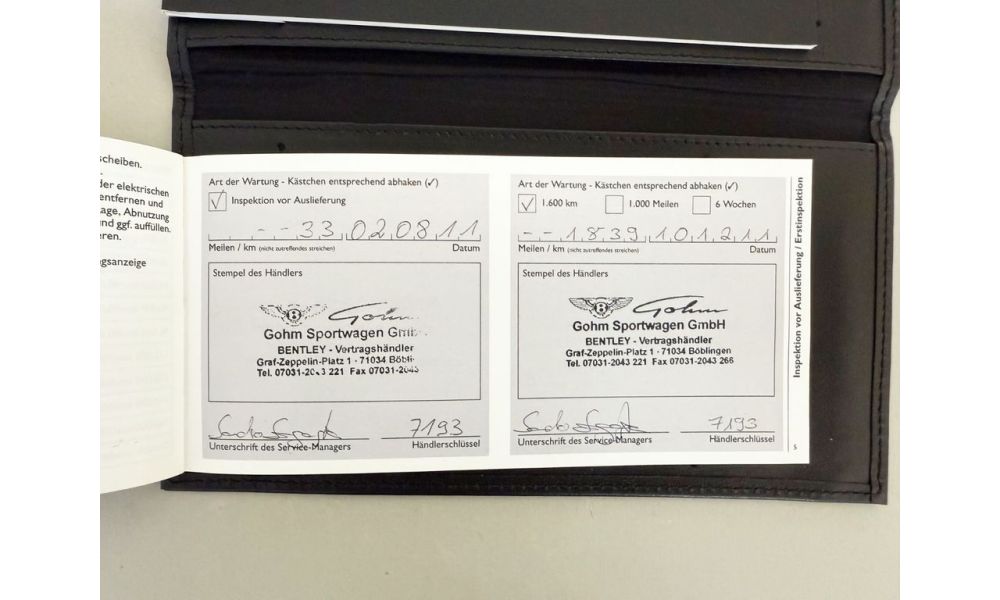 scheiben.
der elektrischen
entfernen und
age, Abnutzung
und ggf. auffüllen.
eren.
gsanzeige
Art der Wartung - Kästchen entsprechend abhaken (✓)
✓ Inspektion vor Auslieferung
- - 3 3 0 2 0 8 1 1
Meilen / km (nicht zutreffendes streichen) Datum
Stempel des Händlers
B Gohm
Gohm Sportwagen Gmb
BENTLEY - Vertragshändler
Graf-Zeppelin-Platz 1 · 71034 Böbli
Tel. 07031-2043 221 Fax 07031-2043
7193
Unterschrift des Service-Managers Händlerschlüssel
Art der Wartung - Kästchen entsprechend abhaken (✓)
✓ 1.600 km 1.000 Meilen 6 Wochen
- - 1 8 3 9 1 0 1 2 1 1
Meilen / km (nicht zutreffendes streichen) Datum
Stempel des Händlers
B Gohm
Gohm Sportwagen GmbH
BENTLEY - Vertragshändler
Graf-Zeppelin-Platz 1 · 71034 Böblingen
Tel. 07031-2043 221 Fax 07031-2043 266
7193
Unterschrift des Service-Managers Händlerschlüssel
Inspektion vor Auslieferung / Erstinspektion
5